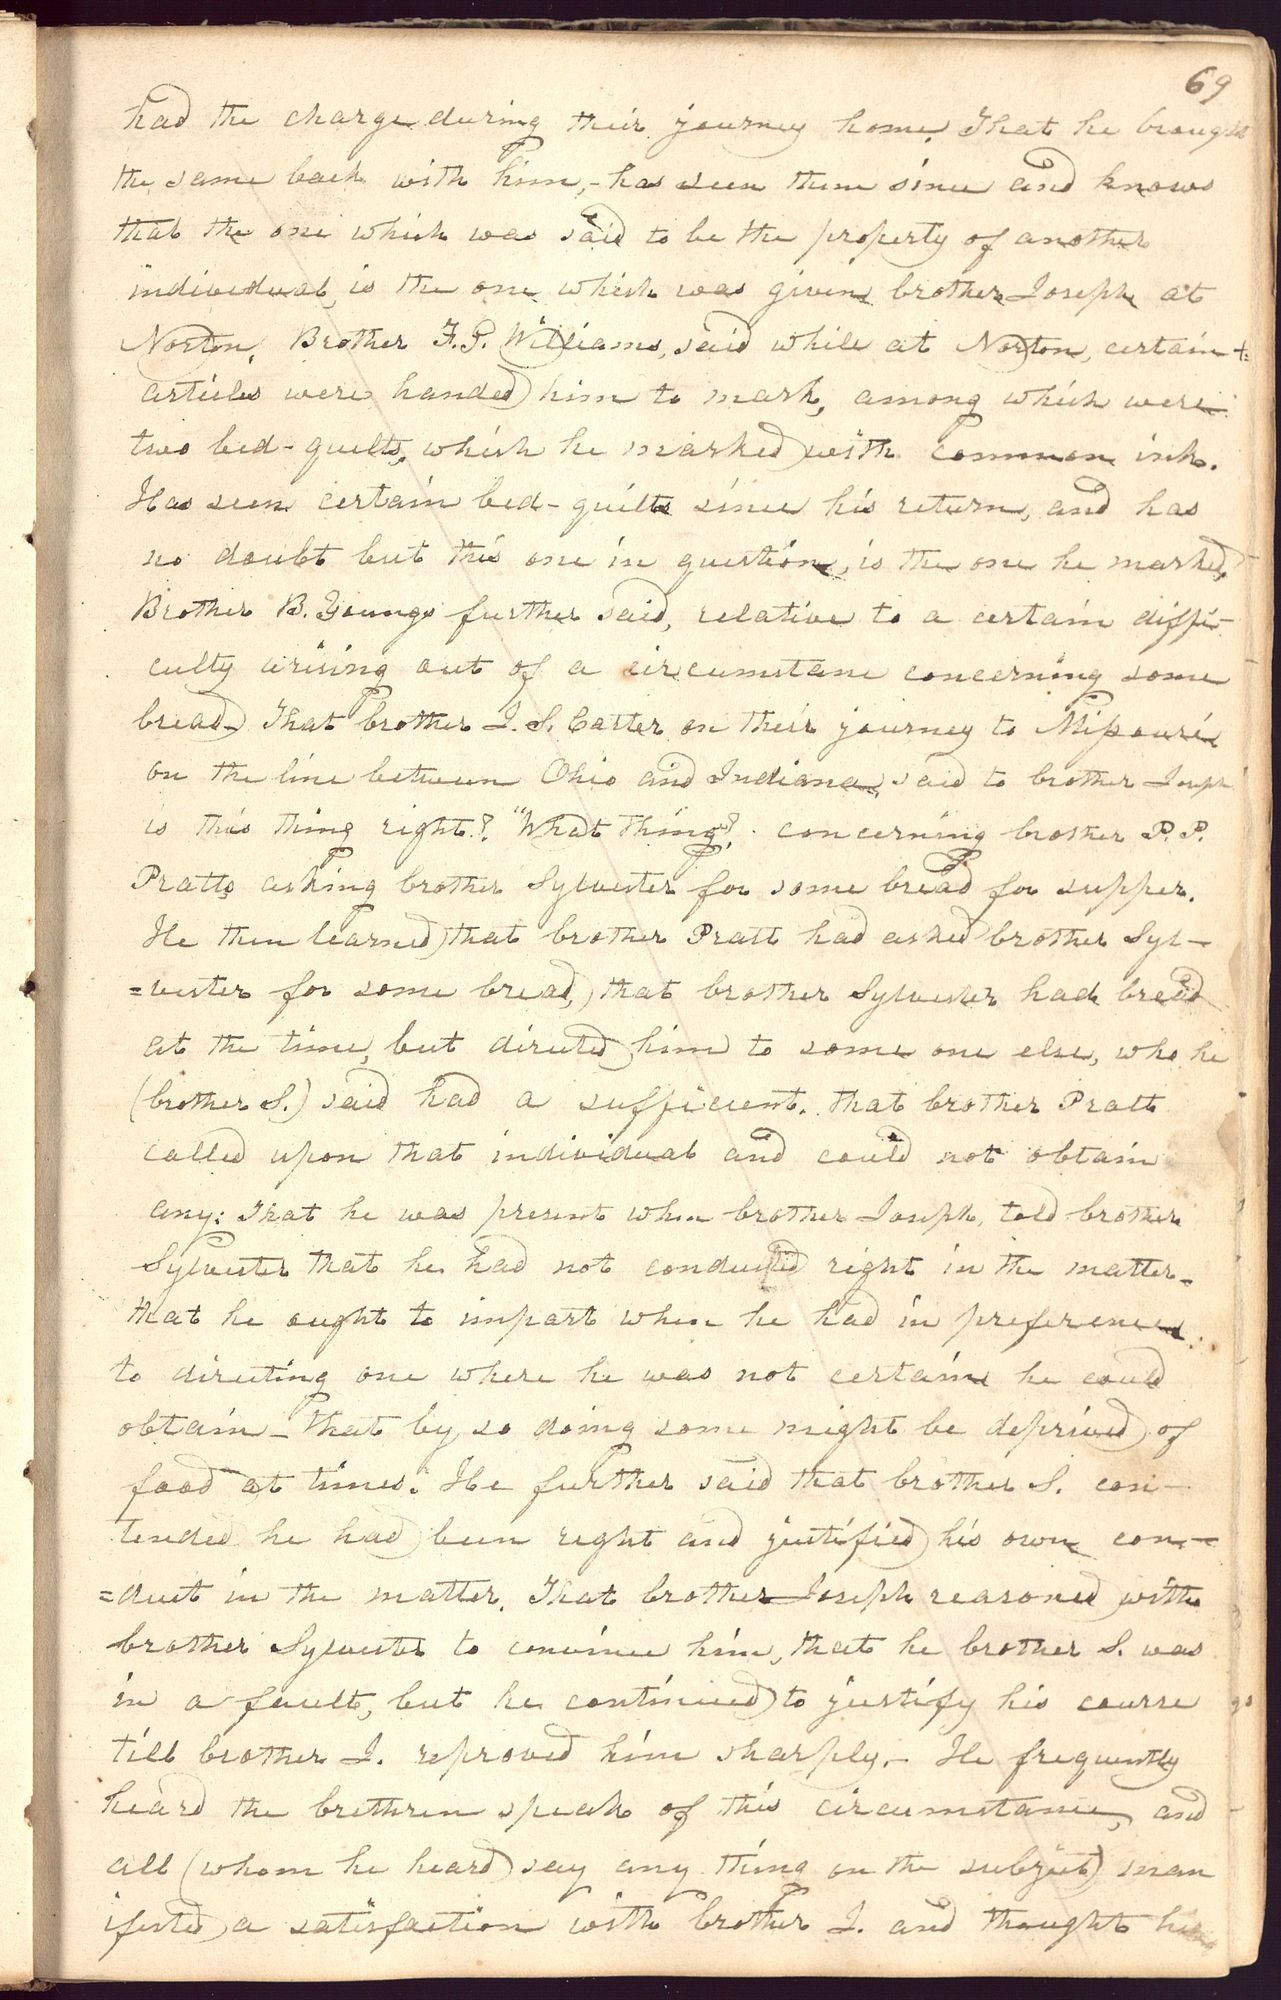 69
had the charge during their journey home. That he brought
the same back with him,- has seen them since and knows
that the one which was said to be the property of another
individual, is the one which was given brother Joseph at
Norton. Brother F. G. Williams, said while at Norton, certain
articles were handed him to mark, among which were
two bed-quilts, which he marked with common ink.
Has seen certain bed-quilts since his return, and has
no doubt but this one in question, is the one he marked.
Brother B. Youngs further said, relative to a certain diffi-
culty arising out of a circumstane concerning some
bread- That brother J. S. Carter on their journey to Missouri
on the line between Ohio and Indiana, said to brother Joseph
is this thing right? "What thing?" concerning brother P. P.
Pratts asking brother Sylvester for some bread for supper.
He then learned that brother Pratt had asked brother Syl-
=vester for some bread, that brother Sylvester had bread
at the time, but directed him to some one else, who he
(brother S.) said had a sufficient. that brother Pratt
called upon that individual and could not obtain
any: That he was present when brother Joseph, told brother
Sylvester that he had not conducted right in the matter-
that he ought to impart when he had in preference
to directing one where he was not certain he could
obtain- that by so doing some might be deprived of
food at times. He further said that brother S. con-
tended he had been right and justified his own con-
=duct in the matter. That brother Joseph reasoned with
brother Sylvester to convince him, that he brother S. was
in a fault, but he continued to justify his course
till brother J. reproved him sharply.- He frequently
heard the brethren speak of this circumstance, and
all (whom he heard say any thing on the subject) man
ifested a satisfaction with brother J. and thought he